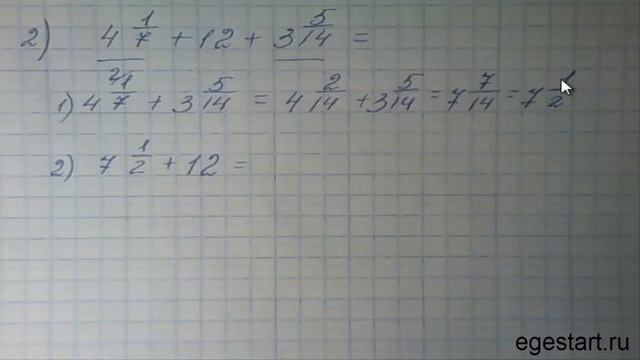 2) 4 1/7 + 12 + 3 5/14 =
1) 4 1/7 ²⁾ + 3 5/14 = 4 2/14 + 3 5/14 = 7 7/14 = 7 1/2
2) 7 1/2 + 12 =
egestart.ru